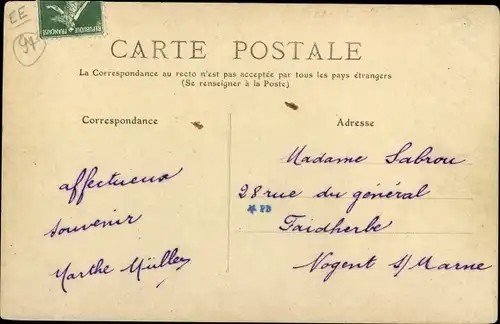 EE
94
CARTE POSTALE
La Correspondance au recto n'est pas acceptée par tous les pays étrangers
(Se renseigner à la Poste)
Correspondance
affectueux
souvenir
Marthe Müller
Adresse
Madame Sabrou
28 rue du général
FB
Faidherbe
Nogent s/Marne